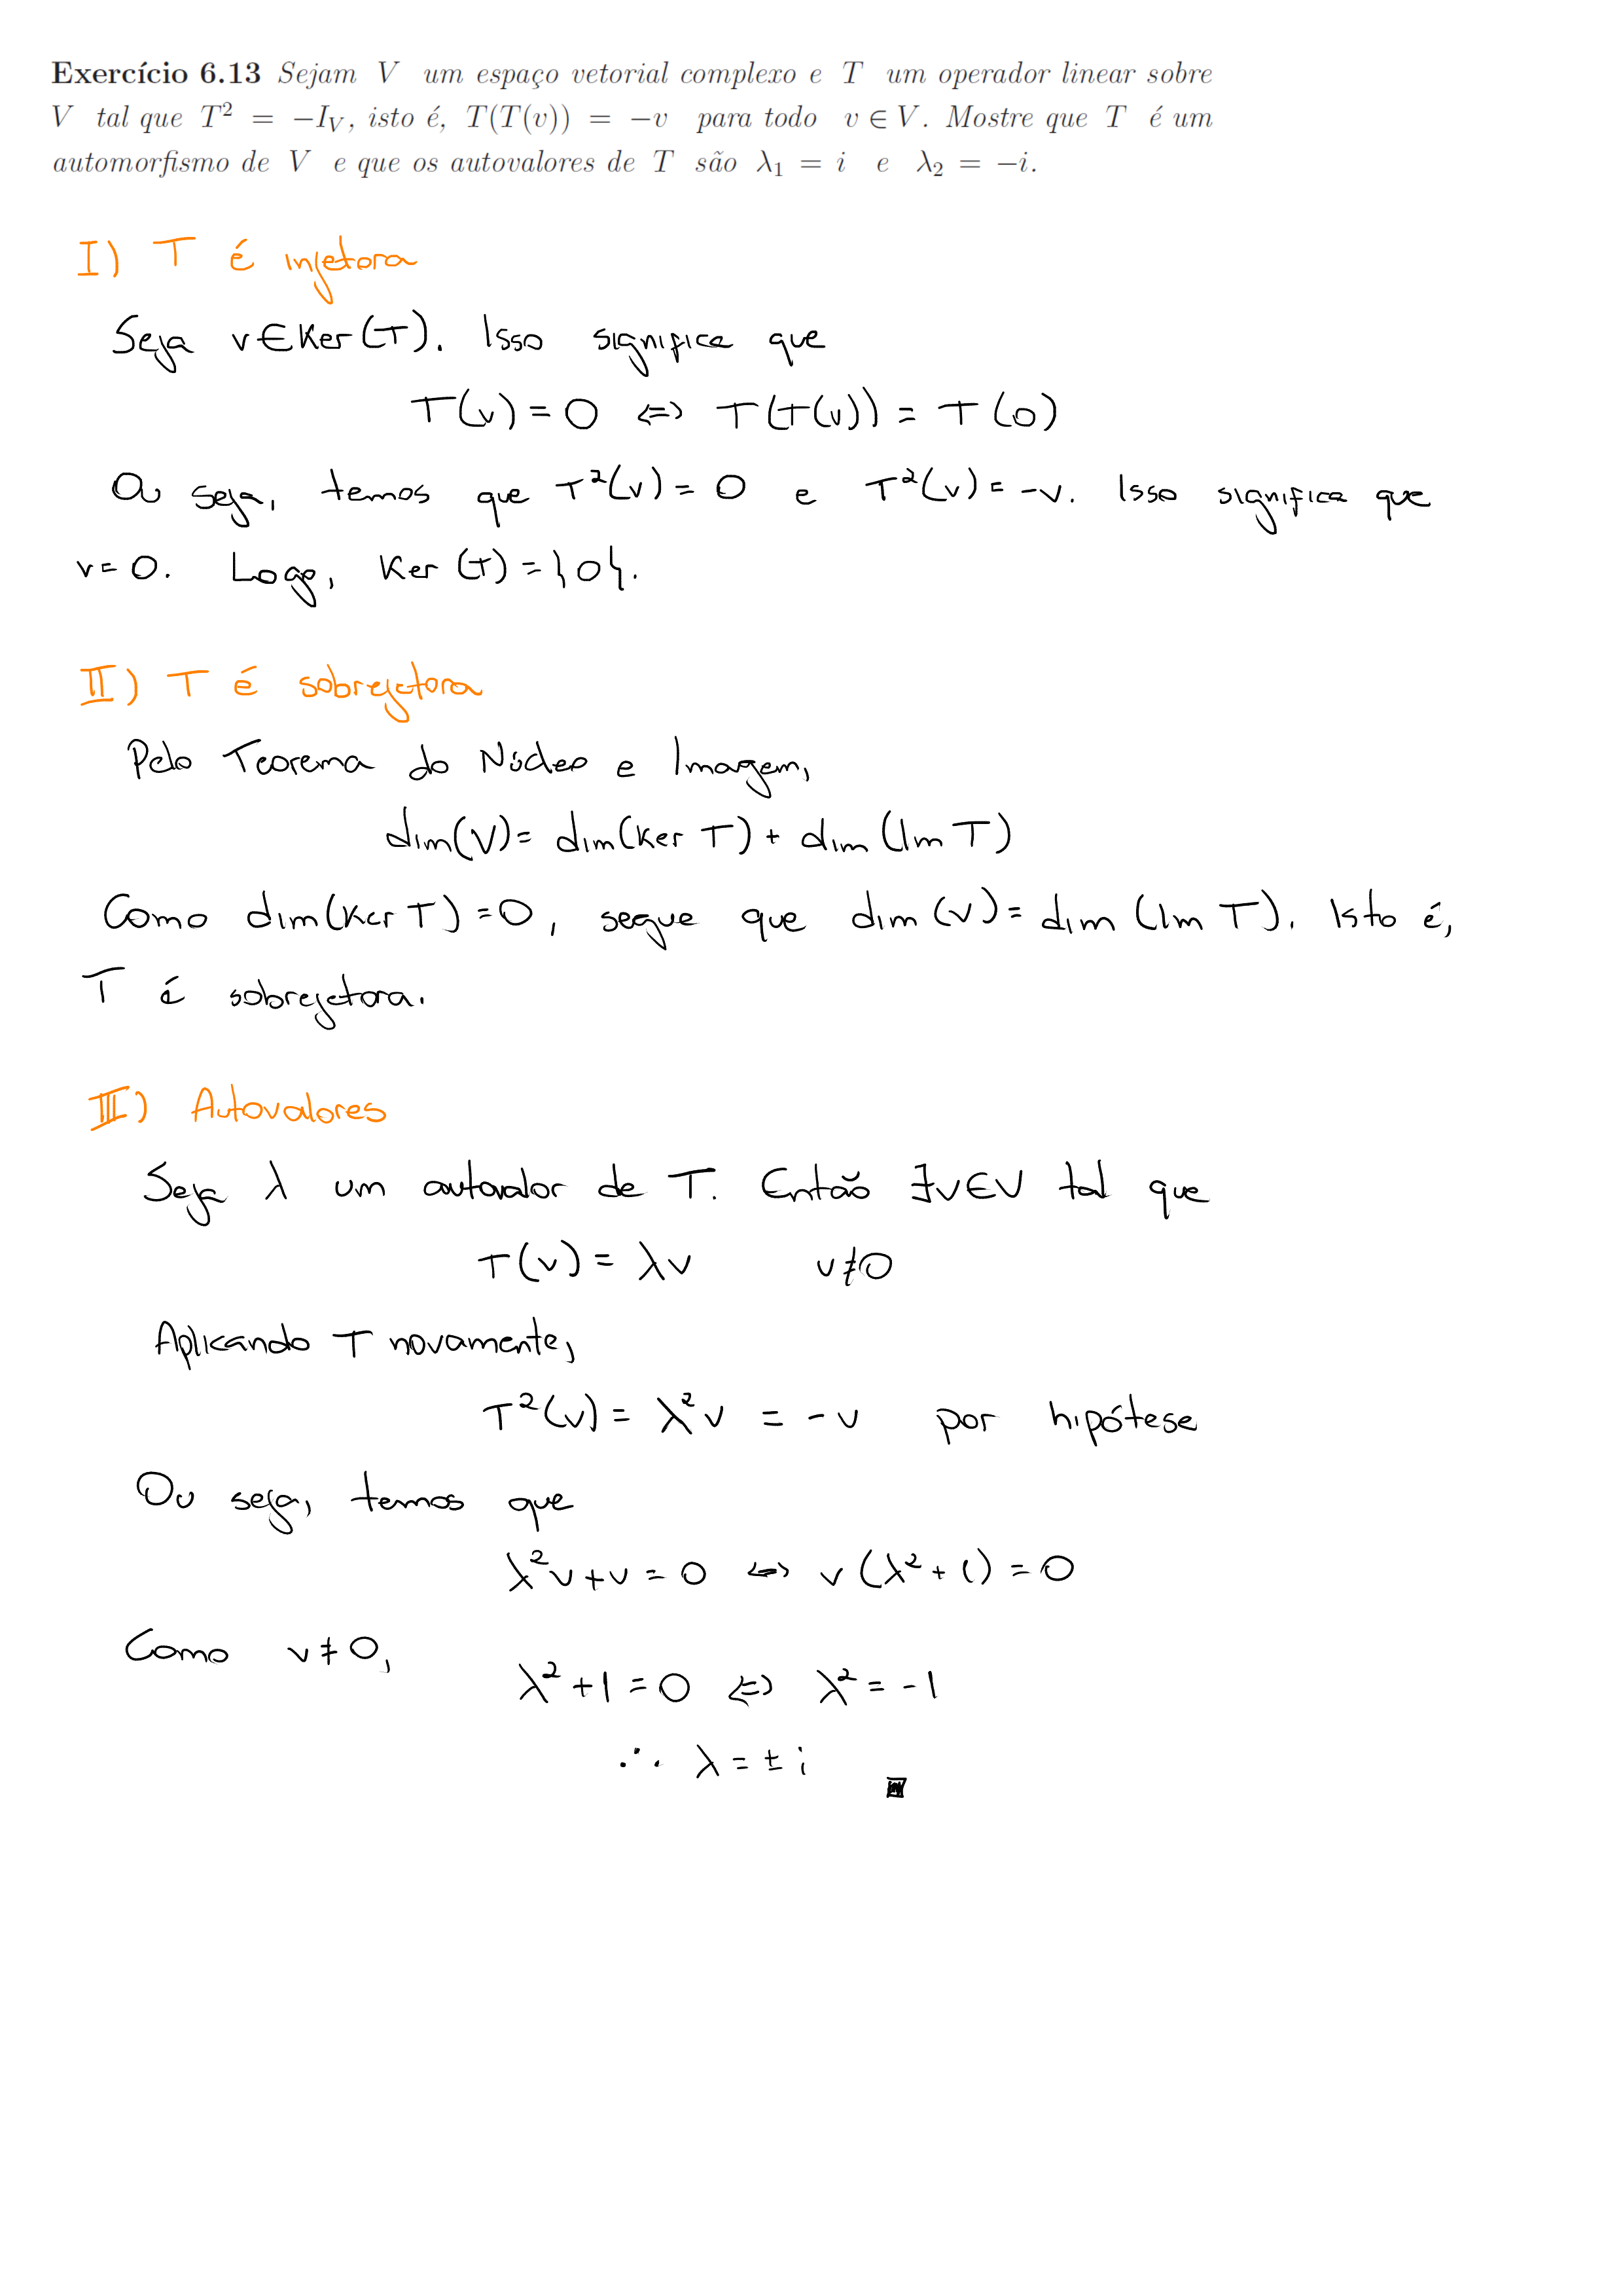 Exercício 6.13 Sejam V um espaço vetorial complexo e T um operador linear sobre
V tal que T² = −I_V, isto é, T(T(v)) = −v para todo v ∈ V. Mostre que T é um
automorfismo de V e que os autovalores de T são λ₁ = i e λ₂ = −i.
I) T é injetora
Seja v∈Ker(T). Isso significa que
T(v) = 0 ⇔ T(T(v)) = T(0)
Ou seja, temos que T²(v) = 0 e T²(v) = -v. Isso significa que
v = 0. Logo, Ker(T) = {0}.
II) T é sobrejetora
Pelo Teorema do Núcleo e Imagem,
dim(V) = dim(Ker T) + dim(Im T)
Como dim(Ker T) = 0, segue que dim(V) = dim(Im T). Isto é,
T é sobrejetora.
III) Autovalores
Seja λ um autovalor de T. Então ∃v∈V tal que
T(v) = λv v≠0
Aplicando T novamente,
T²(v) = λ²v = -v por hipótese
Ou seja, temos que
λ²v + v = 0 ⇔ v(λ² + 1) = 0
Como v ≠ 0,
λ² + 1 = 0 ⇔ λ² = -1
∴ λ = ± i